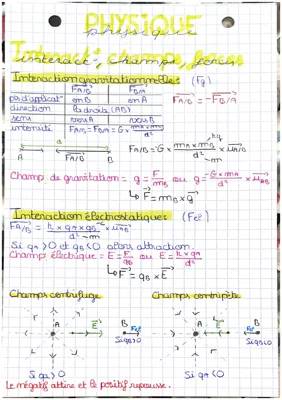 PHYSIQUE
physique
Interact°, champs, forces
interact°, champs, forces
Interaction gravitationnelle: (Fg)
F⃗A/B F⃗B/A
pt d'applicat° en B en A
direction la droite (AB)
sens vers A vers B
intensité FA/B = FB/A = G × mA × mB / d²
F⃗A/B = -F⃗B/A
A d B
F⃗A/B
F⃗A/B = G × mA × mB / d² × u⃗A/B
kg
m
Champ de gravitation = g = F / m ou g = G × mA / d² × u⃗AB
↳ F⃗ = mB × g⃗
Interaction électrostatique: (Fel)
F⃗A/B = k × qA × qB / d² × u⃗AB
m
Si qA > 0 et qB < 0 alors attraction.
Champ électrique: = E = F / qB ou E = k × qA / d²
↳ F⃗ = qB × E⃗
Champ centrifuge Champ centripète
A E⃗ Fel B
Si qB < 0
Si qA > 0
A E⃗ B Fel
Si qB < 0
Si qA < 0
Le négatif attire et le positif repousse.